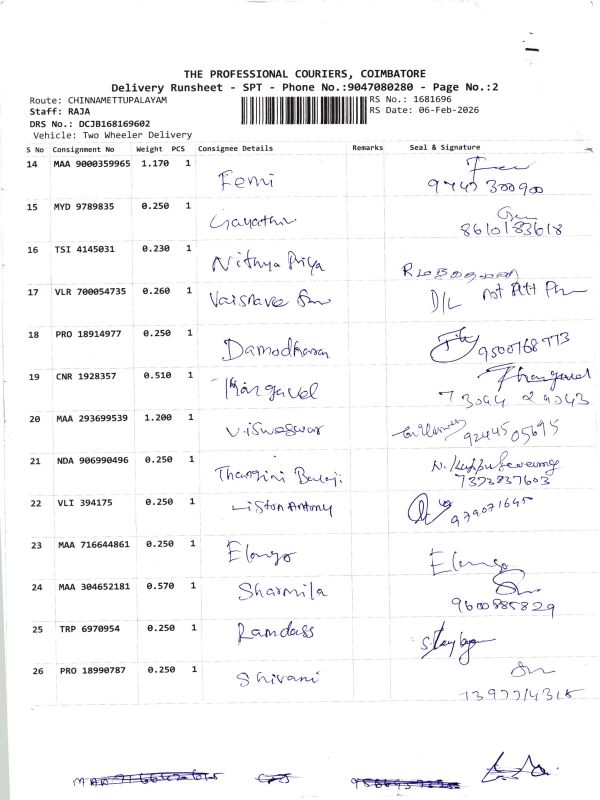 THE PROFESSIONAL COURIERS, COIMBATORE
Delivery Runsheet - SPT - Phone No.:9047080280 - Page No.:2
Route: CHINNAMETTUPALAYAM RS No.: 1681696
Staff: RAJA RS Date: 06-Feb-2026
DRS No.: DCJB168169602
Vehicle: Two Wheeler Delivery
S No Consignment No Weight PCS Consignee Details Remarks Seal & Signature
14 MAA 9000359965 1.170 1 Femi
15 MYD 9789835 0.250 1 Gayathri 8610183618
16 TSI 4145031 0.230 1 Nithya Priya
17 VLR 700054735 0.260 1 D/L
18 PRO 18914977 0.250 1 Damodharan 9500768773
19 CNR 1928357 0.510 1 Thangavel Thangavel
20 MAA 293699539 1.200 1 Visweswar 9244505695
21 NDA 906990496 0.250 1 Tharrini Balaji
7373837603
22 VLI 394175 0.250 1 Liston Antony 979071645
23 MAA 716644861 0.250 1 Elango Elango
24 MAA 304652181 0.570 1 Sharmila
9600885829
25 TRP 6970954 0.250 1 Ramdass
26 PRO 18990787 0.250 1 Shivani